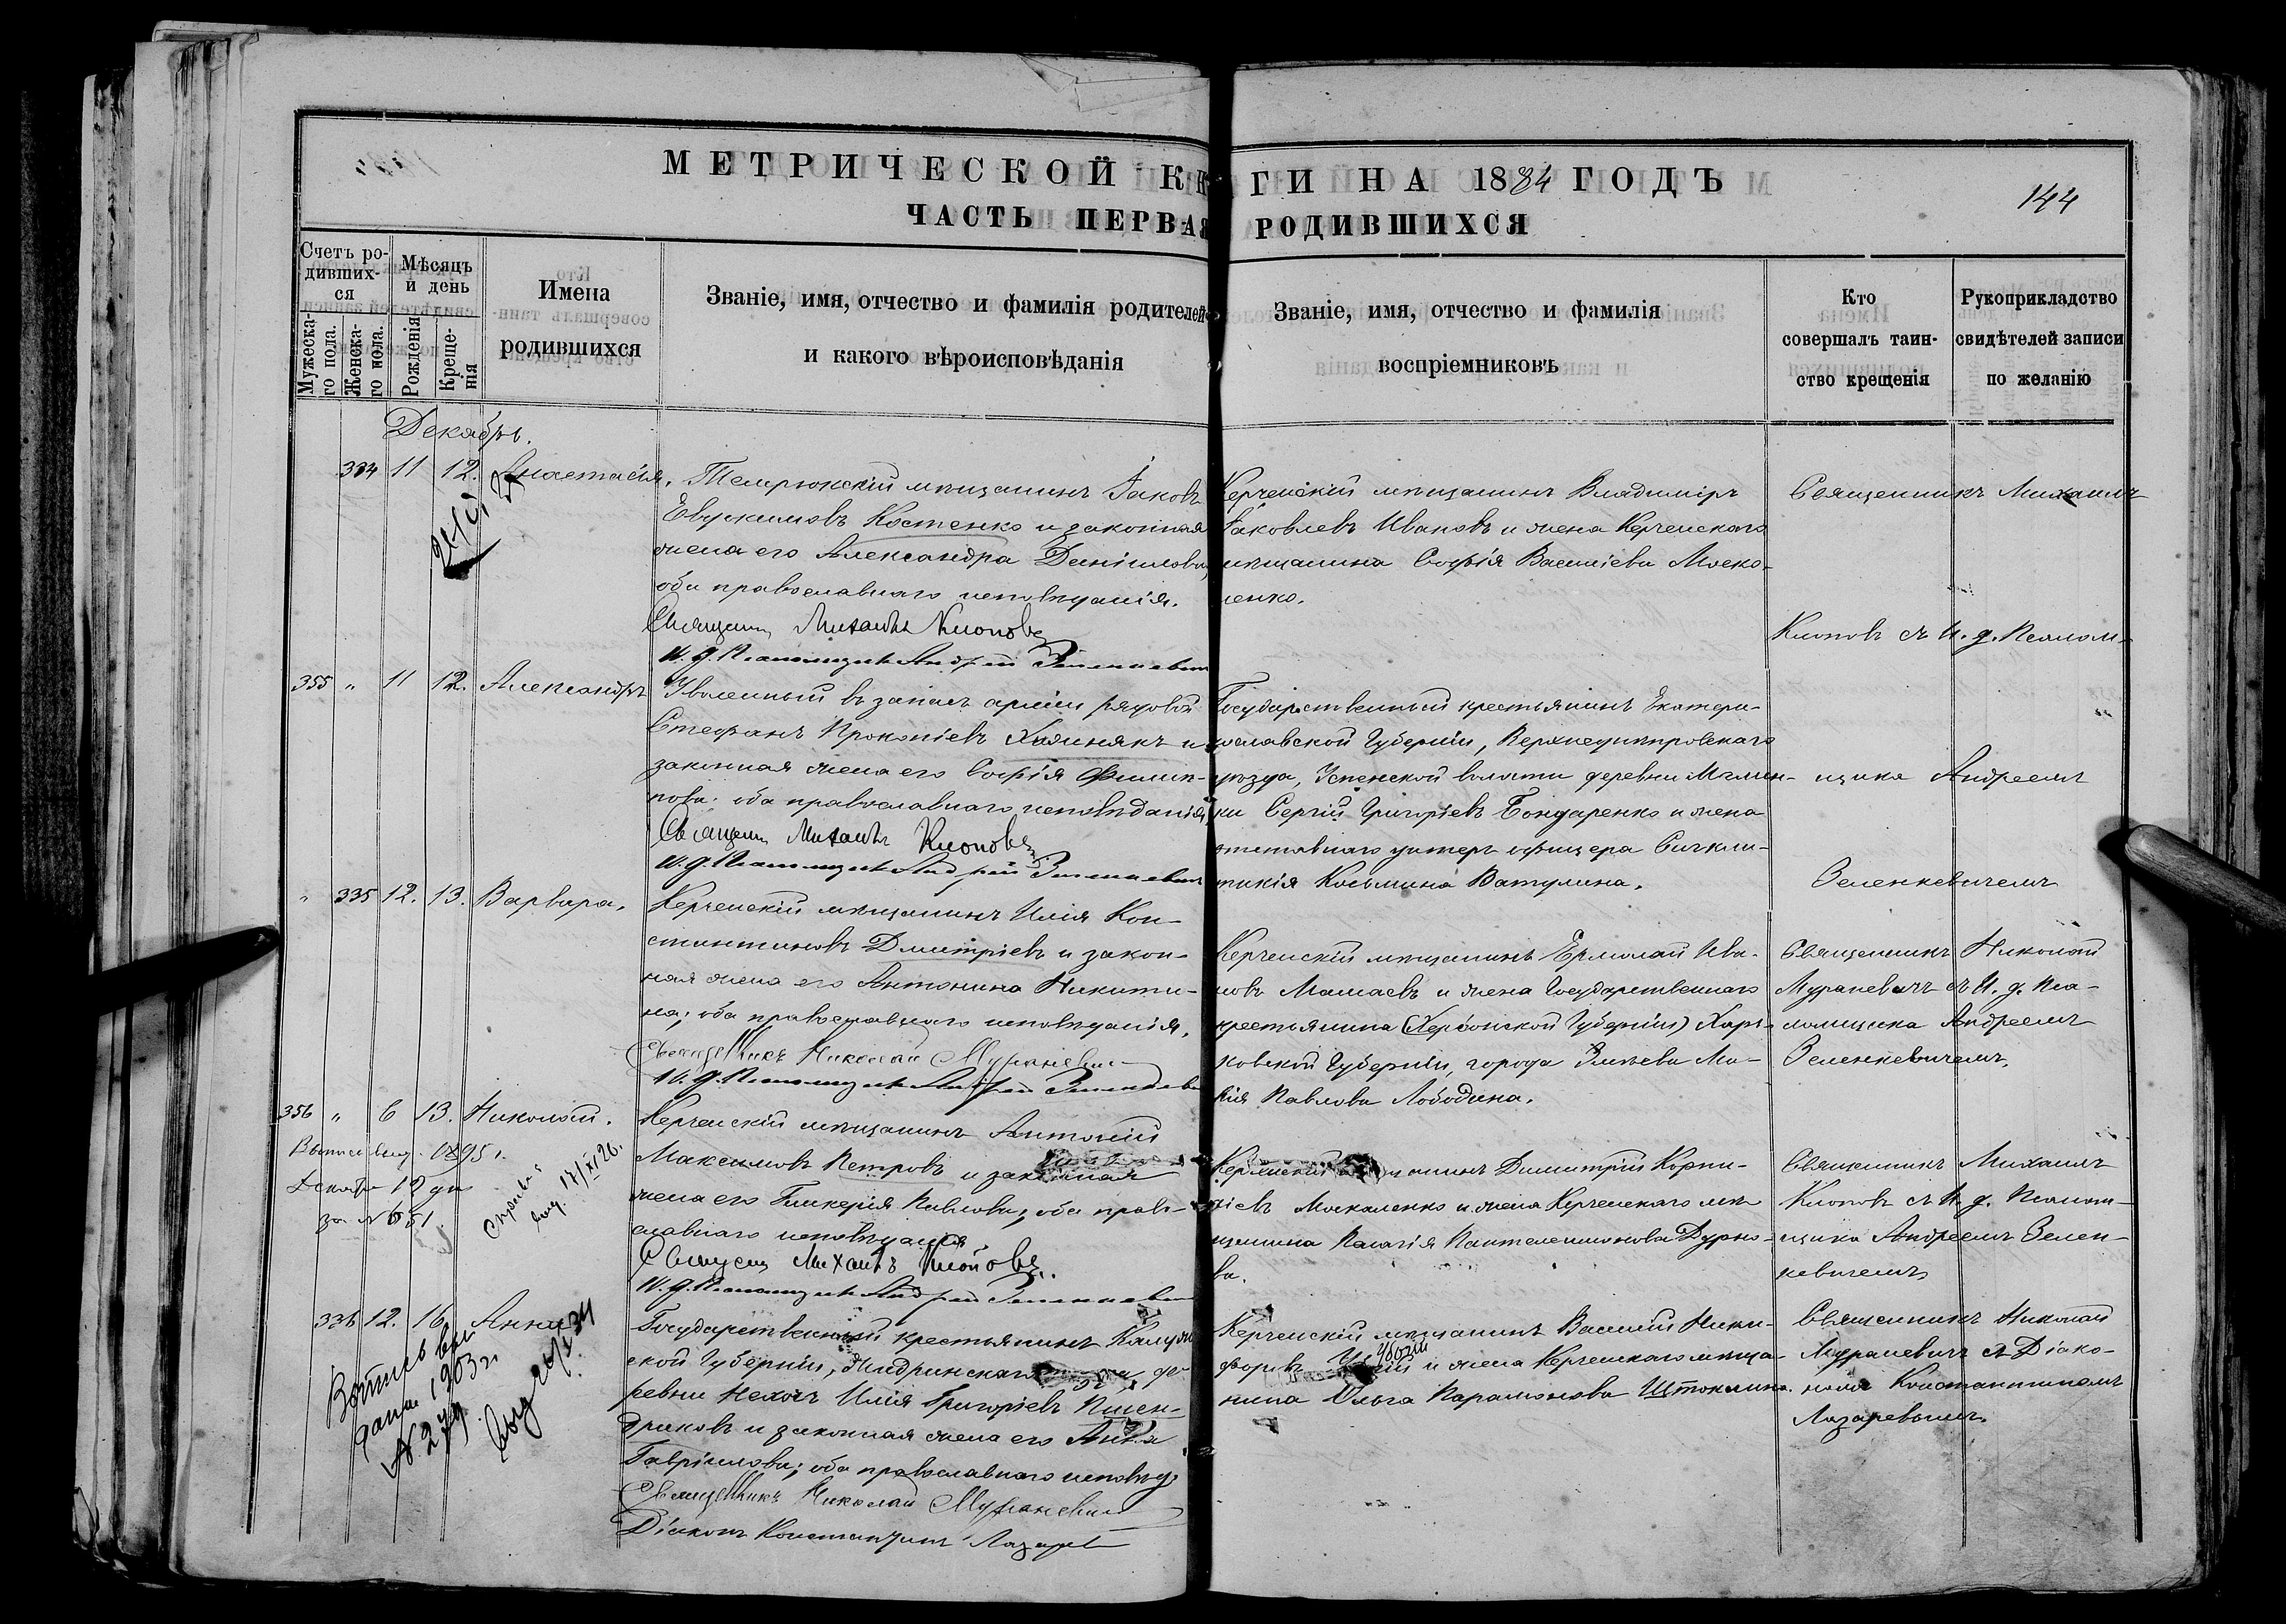 МЕТРИЧЕСКОЙ КНИГИ НА 1884 ГОДЪ
144
ЧАСТЬ ПЕРВАЯ РОДИВШИХСЯ
Счетъ родившихся
Мужеска-го пола.
Женска-го пола.
Мѣсяцъ и день
Рожденія
Креще-нія
Имена родившихся
Званіе, имя, отчество и фамилія родителей
и какого вѣроисповѣданія
Званіе, имя, отчество и фамилія
воспріемниковъ
Кто
совершалъ таин-
ство крещенія
Рукоприкладство
свидѣтелей записи
по желанію
Декабрь.
334 11 12. Анастасія.
Темрюкскій мѣщанинъ Іаковъ
Евдокимовъ Костенко и законная
жена его Александра Даніилова,
оба православнаго исповѣданія.
Священ. Михаилъ Клоповъ
И. д. Псаломщика Андрей Зеленкевич
Керченскій мѣщанинъ Владиміръ
Іаковлевъ Ивановъ и жена Керченскаго
мѣщанина Софія Василіева Моско-
ленко.
Священникъ Михаилъ
Клоповъ съ И. д. Псалом-
щика Андреемъ
Зеленкевичемъ
355 " 11 12. Александръ
Уволенный въ запасъ арміи рядовой
Стефанъ Прокопіевъ и
законная жена его Софія Филип-
пова; оба православнаго исповѣданія
Священ. Михаилъ Клоповъ
И. д. Псаломщика Андрей Зеленкевич
Государственный крестьянинъ Екатери-
нославской Губерніи, Верхнеднѣпровскаго
уѣзда, Успенской волости деревни
Сергій Григоріевъ Бондаренко и жена
отставнаго унтеръ офицера
Косьмина Ватулина.
" 335 12. 13. Варвара.
Керченскій мѣщанинъ Илія Кон-
стантиновъ Дмитріевъ и закон-
ная жена его Антонина Никити-
на; оба православнаго исповѣданія.
Священникъ Николай Мураневич
И. д. Псаломщика Андрей Зеленкевич
Керченскій мѣщанинъ Ермолай Ива-
новъ Мамаевъ и жена Государственнаго
крестьянина (Херсонской Губерніи) Харь-
ковской Губерніи, города Зміева Ма-
рія Павлова Лободина.
Священникъ Николай
Мураневичъ съ И. д. Пса-
ломщика Андреемъ
Зеленкевичемъ.
356 " 6 13. Николай.
1895 г.
Декабря 12 дня
за № 651
выд. 17/XI 26.
Керченскій мѣщанинъ Антоній
Максимовъ Петровъ и законная
жена его Гликерія Павлова; оба право-
славнаго исповѣданія
Священ. Михаилъ Клоповъ.
И. д. Псаломщика Андрей Зеленкевич
Керченскій мѣщанинъ Димитрій Корни-
ліевъ Москаленко и жена Керченскаго мѣ-
щанина Пелагія Пантелеимонова Дурно-
ва.
Священникъ Михаилъ
Клоповъ съ И. д. Псалом-
щика Андреемъ Зелен-
кевичемъ
336 12. 16. Анна
Выпись
дана 1903 г.
№ 279
Государственный крестьянинъ Калуж-
ской Губерніи, Жиздринскаго уѣзда, де-
ревни Нехочь Илія Григоріевъ
и законная жена его Анна
Гавріилова; оба православнаго исповѣд.
Священникъ Николай Мураневич
Діаконъ Константинъ Лазарев
Керченскій мѣщанинъ Василій Ники-
форовъ Убозій и жена Керченскаго мѣща-
нина Ольга Парамонова Штокмина.
Священникъ Николай
Мураневичъ съ Діако-
номъ Константиномъ
Лазаревымъ.